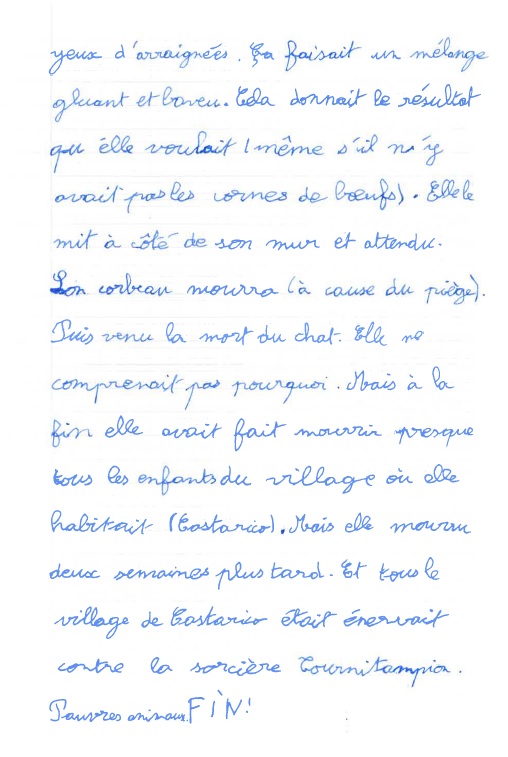 yeux d'arraignées. Ça faisait un mélange
gluant et baveu. Cela donnait le résultat
qu'élle voulait (même s'il n'y
avait pas les cornes de bœufs). Elle le
mit à côté de son mur et attendu.
Son corbeau mourra (à cause du piège).
Puis venu la mort du chat. Elle ne
comprenait pas pourquoi. Mais à la
fin elle avait fait mourrir presque
tous les enfants du village où elle
habitait (Costarico). Mais elle mouru
deux semaines plus tard. Et tous le
village de Costarico était énervait
contre la sorcière Tournitampion.
Pauvres animaux. FIN!